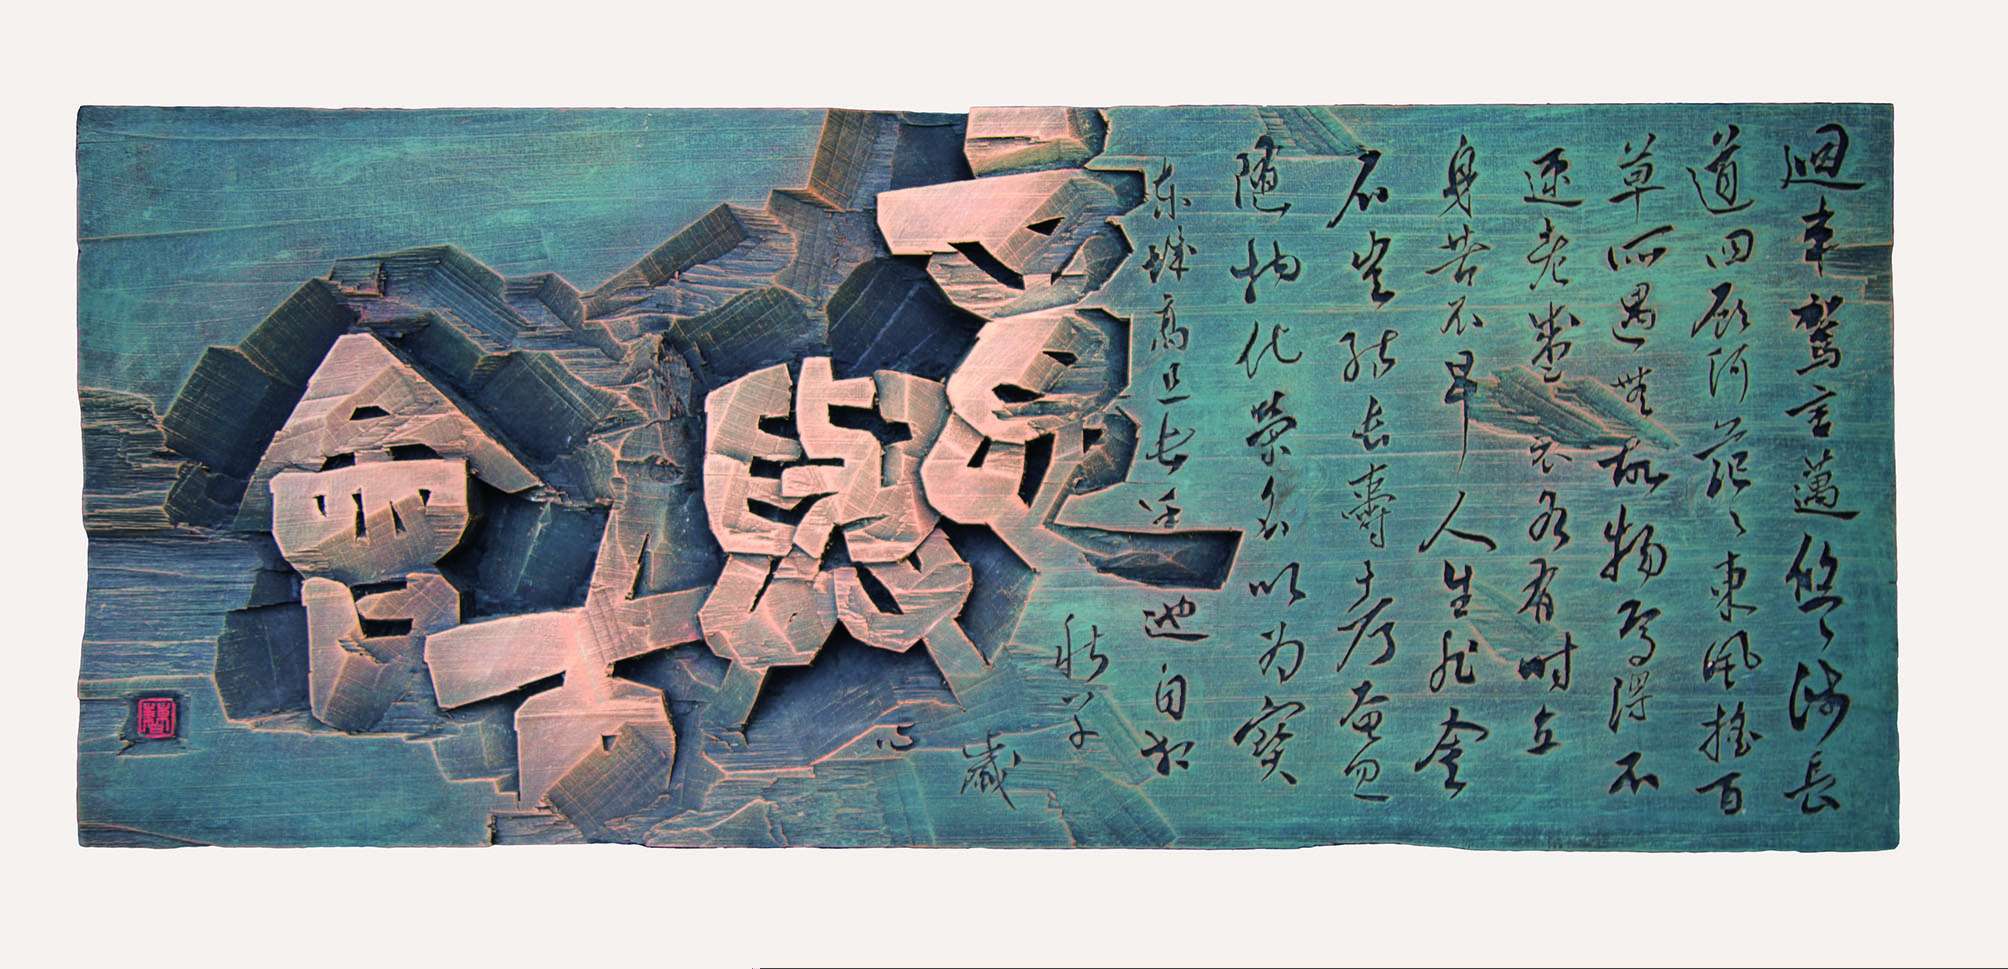 迴車駕言邁悠〻涉長
道四顧何茫〻東風搖百
草所遇無故物焉得不
速老盛衰各有時立
身苦不早人生非金
石豈能長壽考奄忽
隨物化榮名以為寶
东城高且長逶迤自相
秋草
歲
心
意與古會